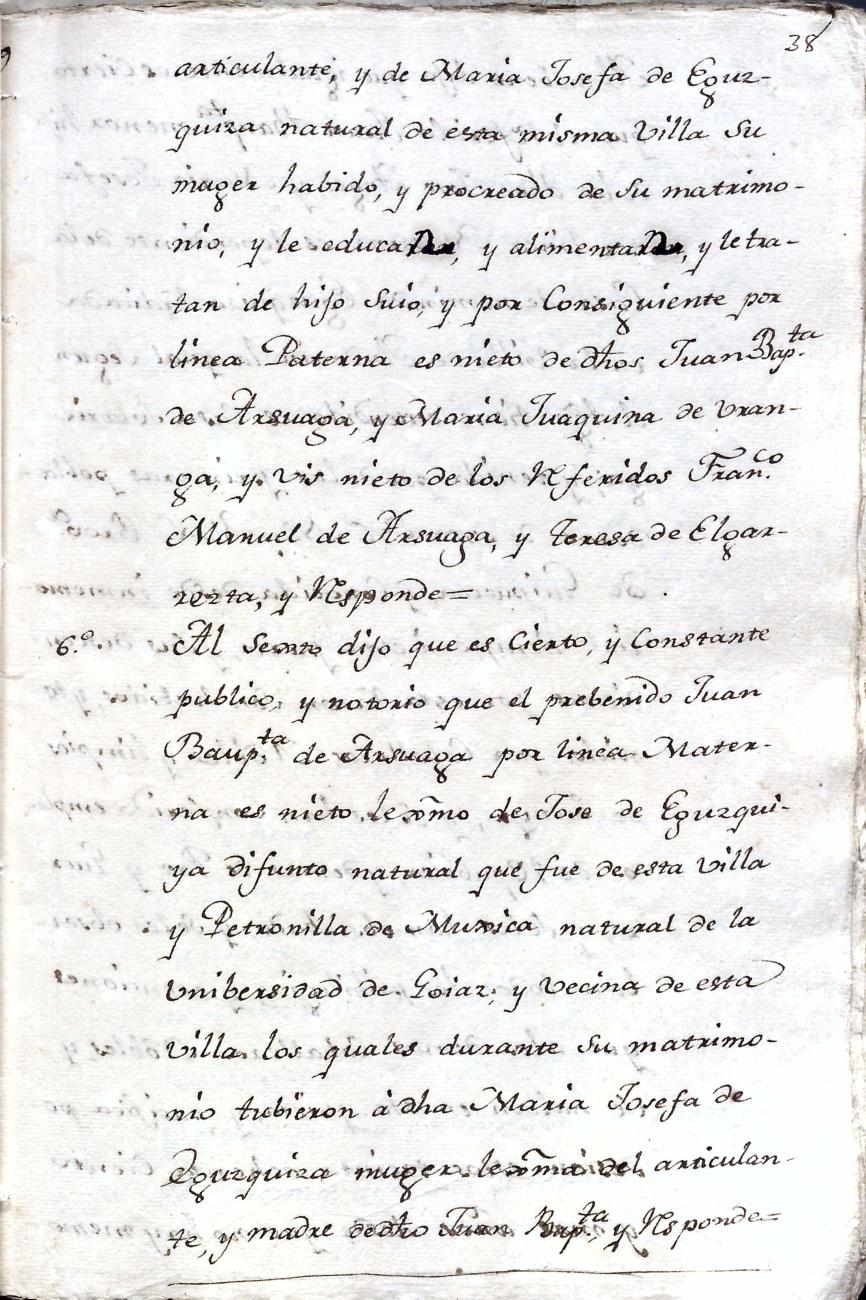 38
articulante, y de Maria Josefa de Eguz-
quiza natural de esta misma Villa su
muger habido, y procreado de su matrimo-
nio, y le educa, y alimenta, y le tra-
tan de hijo suio, y por Consiguiente por
linea Paterna es nieto de dhos Juan Bap.ta
de Arsuaga, y Maria Juaquina de Vran-
ga, y vis nieto de los Rferidos Fran.co
Manuel de Arsuaga, y Teresa de Elgar-
rezta, y Rsponde=
6.o Al Sexto dijo que es Cierto, y Constante
publico, y notorio que el prebenido Juan
Baup.ta de Arsuaga por linea Mater-
na es nieto lexmo de Jose de Eguzqui-
ya difunto natural que fue de esta Villa
y Petronilla de Muxica natural de la
Vnibersidad de Goiaz, y Vecina de esta
Villa los quales durante su matrimo-
nio tubieron à dha Maria Josefa de
Eguzquiza muger lexma del articulan-
te, y madre de dho Juan Bap.ta, y Rsponde=